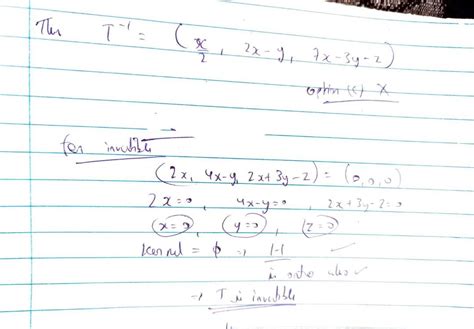 The T⁻¹ = (x/2, 2x-y, 7x-3y-z)
option (c) X
for invertible
(2x, 4x-y, 2x+3y-z) = (0,0,0)
2x=0, 4x-y=0, 2x+3y-z=0
x=0, y=0, z=0
Kernel = ϕ → 1-1 ✓
is onto also ✓
→ T is invertible